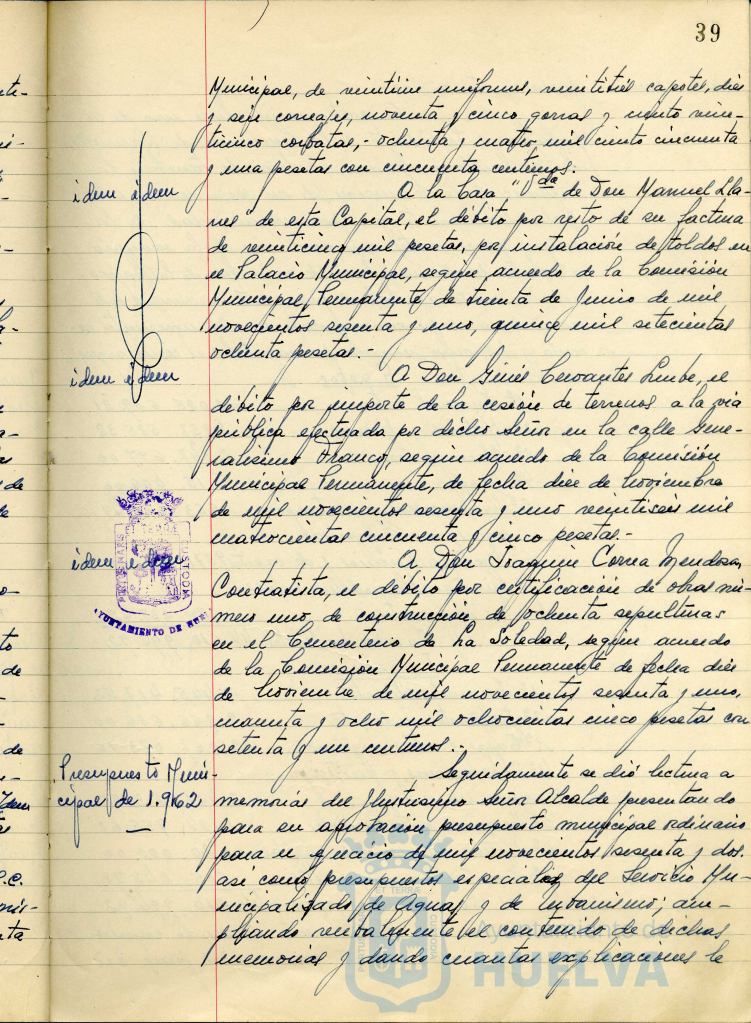 39
Municipal, de veintiún uniformes, veintitrés capotes, diez
y seis correajes, noventa y cinco gorras y ciento vein-
ticinco corbatas,- ochenta y cuatro mil ciento cincuenta
y una pesetas con cincuenta centimos.
idem idem
A la Casa "Vda de Don Manuel Lla-
nes" de esta Capital, el débito por resto de su factura
de veinticinco mil pesetas, por instalación de toldos en
el Palacio Municipal, según acuerdo de la Comisión
Municipal Permanente de treinta de Junio de mil
novecientos sesenta y uno, quince mil setecientas
ochenta pesetas.-
idem idem
A Don Ginés Cervantes, el
débito por importe de la cesión de terrenos a la via
pública efectuada por dicho Señor en la calle Gene-
ralisimo Franco, según acuerdo de la Comisión
Municipal Permanente, de fecha diez de Noviembre
de mil novecientos sesenta y uno veintiseis mil
cuatrocientas cincuenta y cinco pesetas.-
idem idem
A Don Joaquin Correa Mendoza,
Contratista, el débito por certificación de obras nú-
mero uno de construcción de ochenta sepulturas
en el Cementerio de La Soledad, según acuerdo
de la Comisión Municipal Permanente de fecha diez
de Noviembre de mil novecientos sesenta y uno,
cuarenta y ocho mil ochocientas cinco pesetas con
setenta y un centimos.-
Presupuesto Muni-
cipal de 1.962
Seguidamente se dió lectura a
memorias del Ilustrisimo Señor Alcalde presentando
para su aprobación presupuesto municipal ordinario
para el ejercicio de mil novecientos sesenta y dos.
así como presupuestos especiales del Servicio Mu-
nicipalizado de Aguas y de Urbanismo; am-
pliando verbalmente el contenido de dichas
memorias y dando cuantas explicaciones le
PORTUS MARIS
CUSTODIA
AYUNTAMIENTO DE HUELVA
Ayuntamiento de
HUELVA